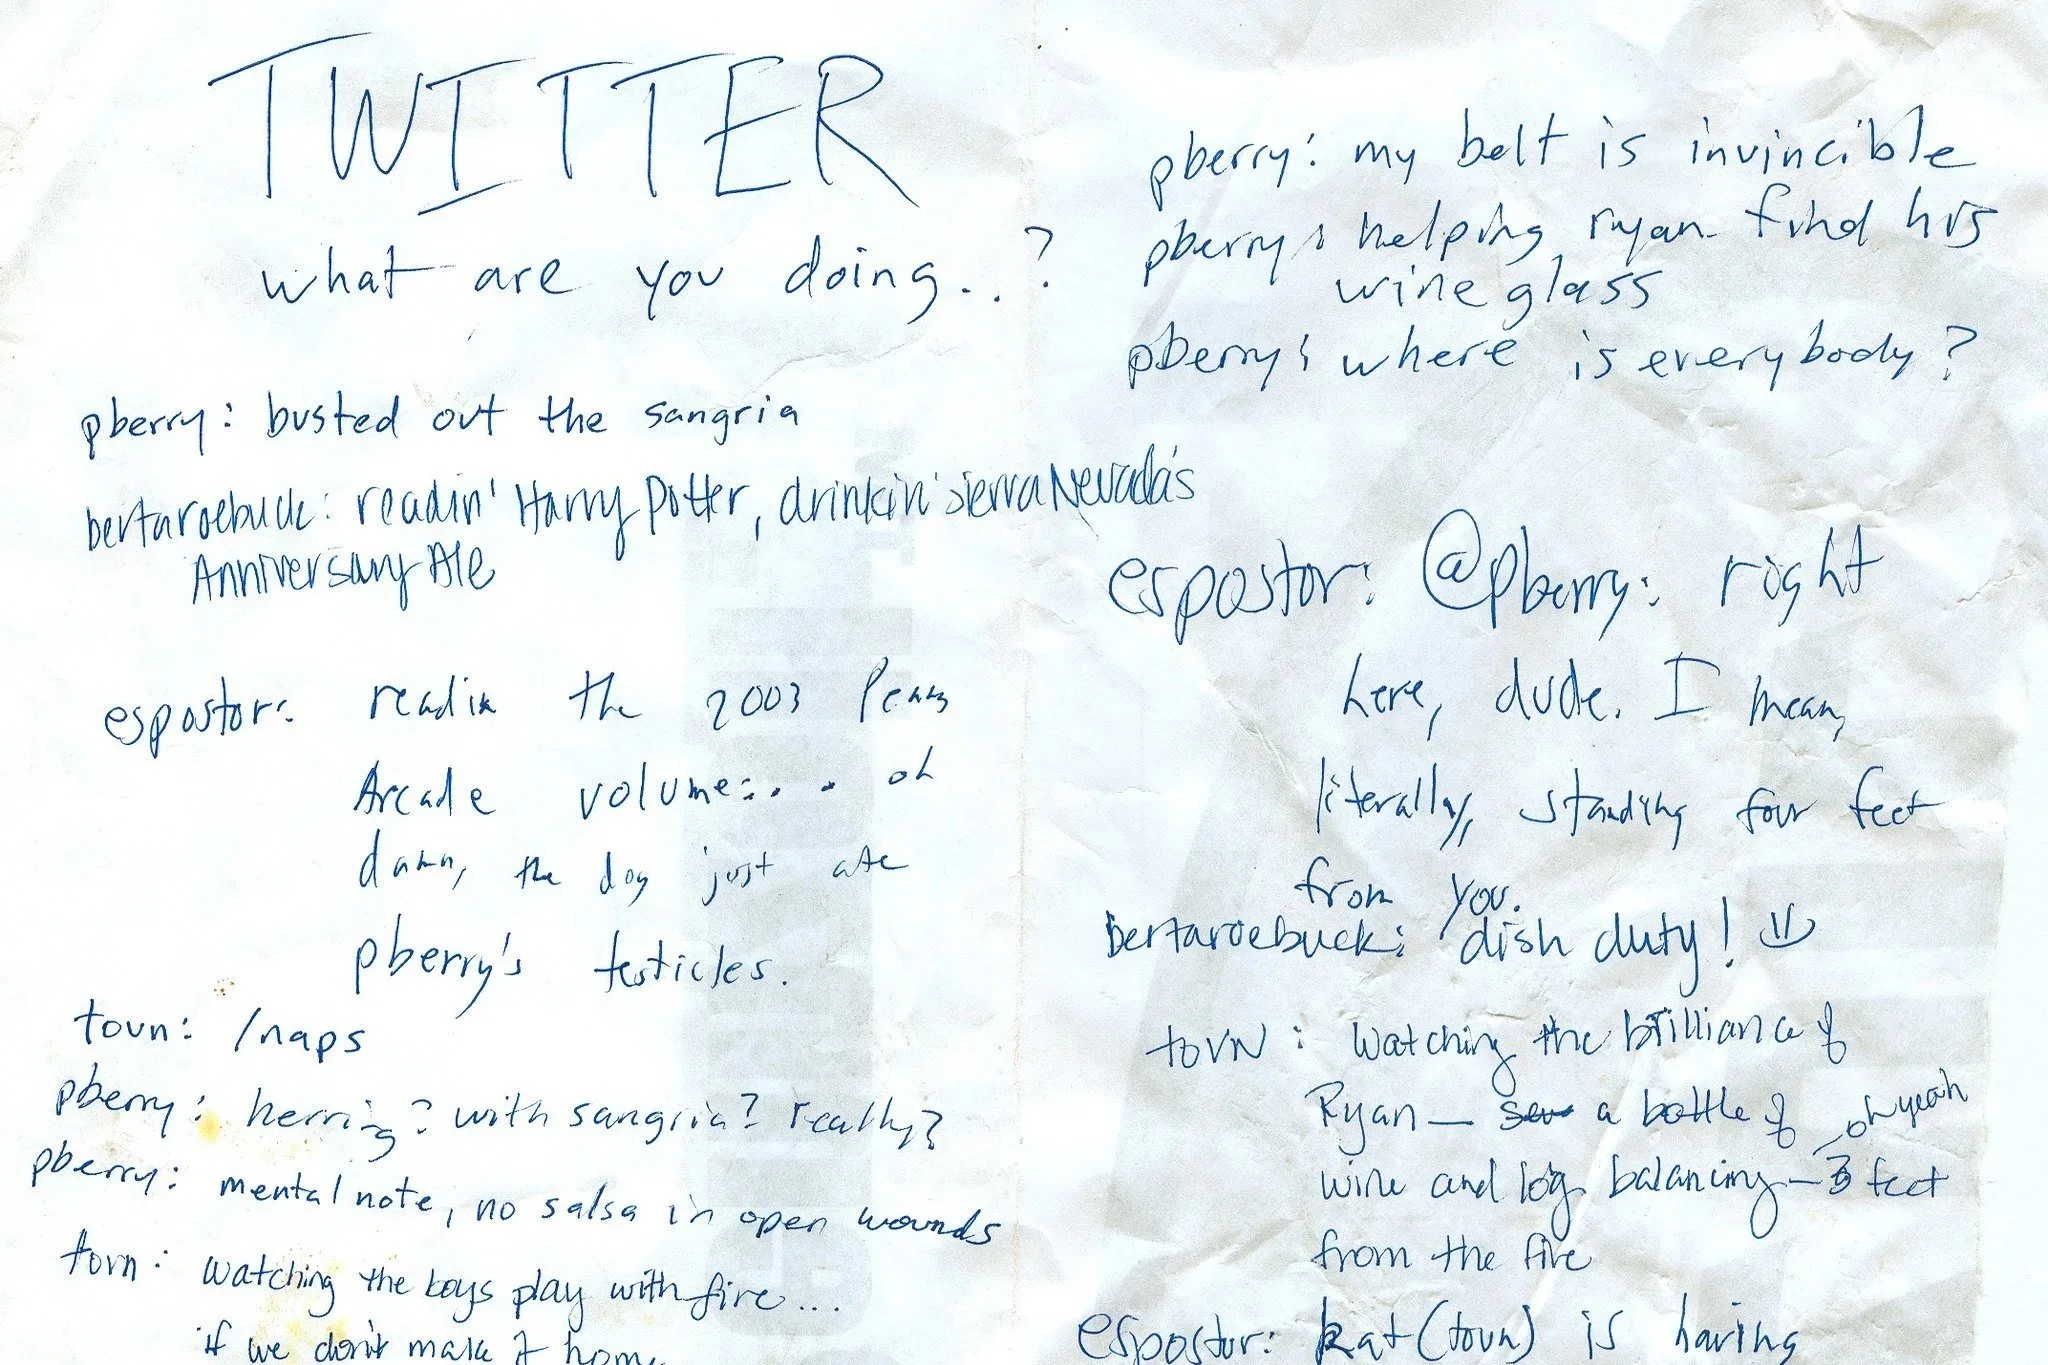 TWITTER
what are you doing...?
pberry: busted out the sangria
bertaroebuck: readin' Harry Potter, drinkin' Sierra Nevada's
Anniversary Ale
espostor: readin the 2003 Penny
Arcade volume... oh
damn, the dog just ate
pberry's testicles.
tovn: /naps
pberry: herring? with sangria? really?
pberry: mental note, no salsa in open wounds
tovn: watching the boys play with fire...
if we don't make it home
pberry: my belt is invincible
pberry: helping ryan find his
wine glass
pberry: where is everybody?
espostor: @pberry: right
here, dude. I mean,
literally, standing four feet
from you.
bertaroebuck: dish duty! =)
tovn: watching the brilliance of
Ryan— a bottle of
oh yeah
wine and log balancing — 3 feet
from the fire
espostor: kat (tovn) is having